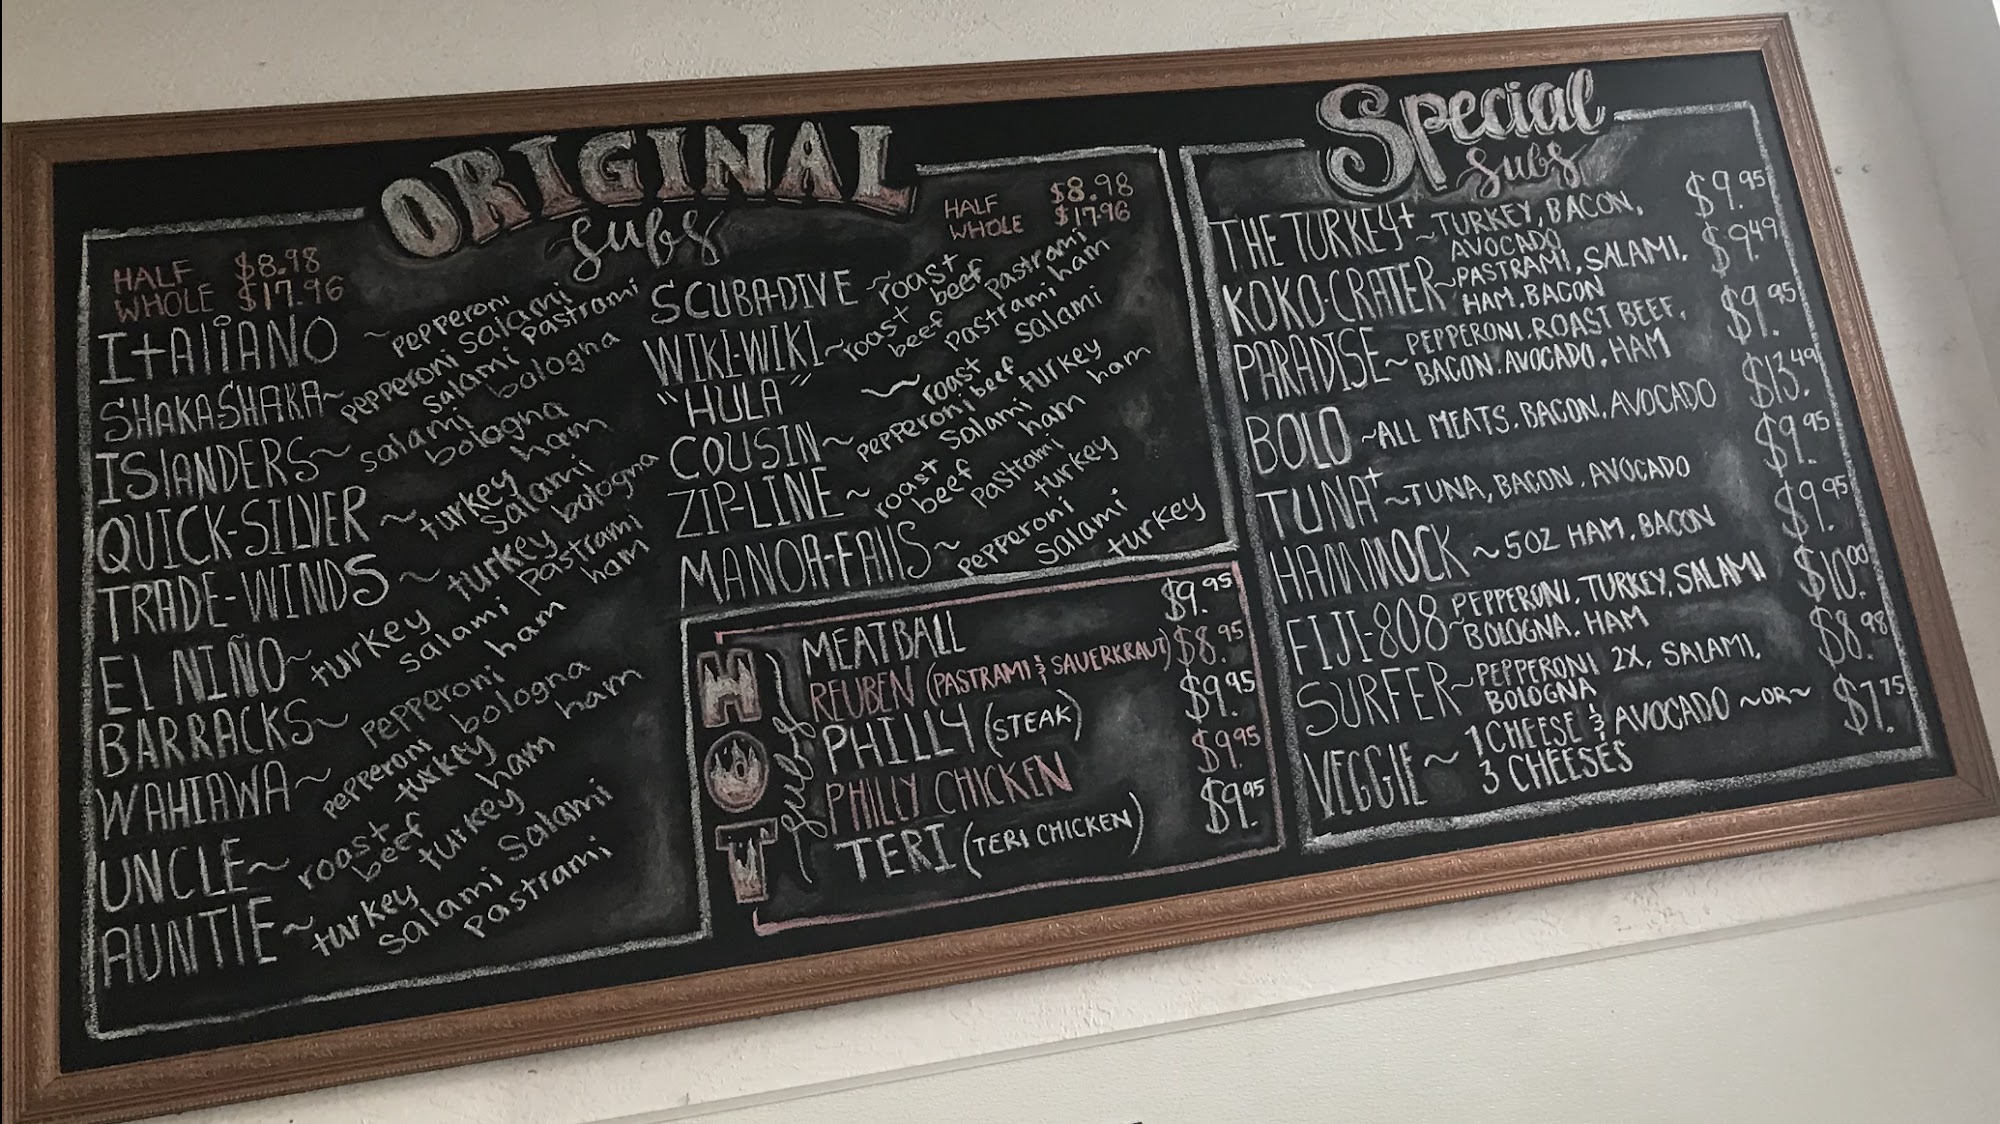 ORIGINAL
subs
HALF $8.98
WHOLE $17.96
ITALIANO ~ pepperoni salami pastrami
SHAKA SHAKA ~ pepperoni salami bologna
ISLANDERS ~ salami bologna ham
QUICK-SILVER ~ turkey salami bologna
TRADE-WINDS ~ turkey pastrami ham
EL NIÑO ~ turkey salami ham
BARRACKS ~ pepperoni bologna ham
WAHIAWA ~ pepperoni turkey ham
UNCLE ~ roast beef turkey salami
AUNTIE ~ turkey salami pastrami
HALF $8.98
WHOLE $17.96
SCUBA-DIVE ~ roast beef pastrami ham
WIKI-WIKI ~ roast beef pastrami salami
"HULA" ~ roast beef turkey ham
COUSIN ~ pepperoni salami ham
ZIP-LINE ~ roast beef pastrami turkey
MANOA-FALLS ~ pepperoni salami turkey
HOT
subs
MEATBALL $9.95
REUBEN (PASTRAMI & SAUERKRAUT) $8.95
PHILLY (STEAK) $9.95
PHILLY CHICKEN $9.95
TERI (TERI CHICKEN) $9.95
Special
subs
THE TURKEY+ ~ TURKEY, BACON, $9.95
AVOCADO
KOKO-CRATER ~ PASTRAMI, SALAMI, $9.49
HAM, BACON
PARADISE ~ PEPPERONI, ROAST BEEF, $9.95
BACON, AVOCADO, HAM
BOLO ~ ALL MEATS, BACON, AVOCADO $13.49
TUNA+ ~ TUNA, BACON, AVOCADO $9.95
HAMMOCK ~ 5OZ HAM, BACON $9.95
FIJI-808 ~ PEPPERONI, TURKEY, SALAMI $10.00
BOLOGNA, HAM
SURFER ~ PEPPERONI 2X, SALAMI, $8.98
BOLOGNA
VEGGIE ~ 1 CHEESE & AVOCADO ~OR~ $7.75
3 CHEESES